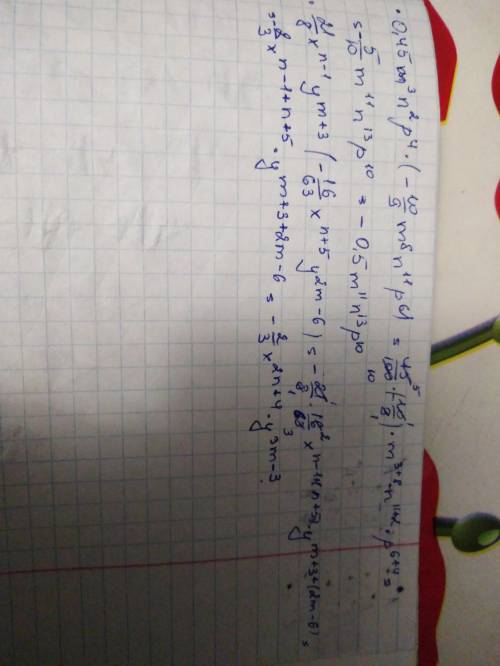 • 0,45 m³n²p⁴ · (- 10/9 m⁸n¹¹p⁶) = 45/100 · (- 10/9) · m³⁺⁸ · n¹¹⁺² · p⁶⁺⁴ =
= - 5/10 m¹¹n¹³p¹⁰ = - 0,5 m¹¹n¹³p¹⁰
• 21/8 x n-1 y m+3 (- 16/63 x n+5 y 2m-6) = - 21/8 · 16/63 x n-1+(n+5) · y m+3+(2m-6) =
= - 2/3 x n-1+n+5 · y m+3+2m-6 = - 2/3 x 2n+4 · y 3m-3